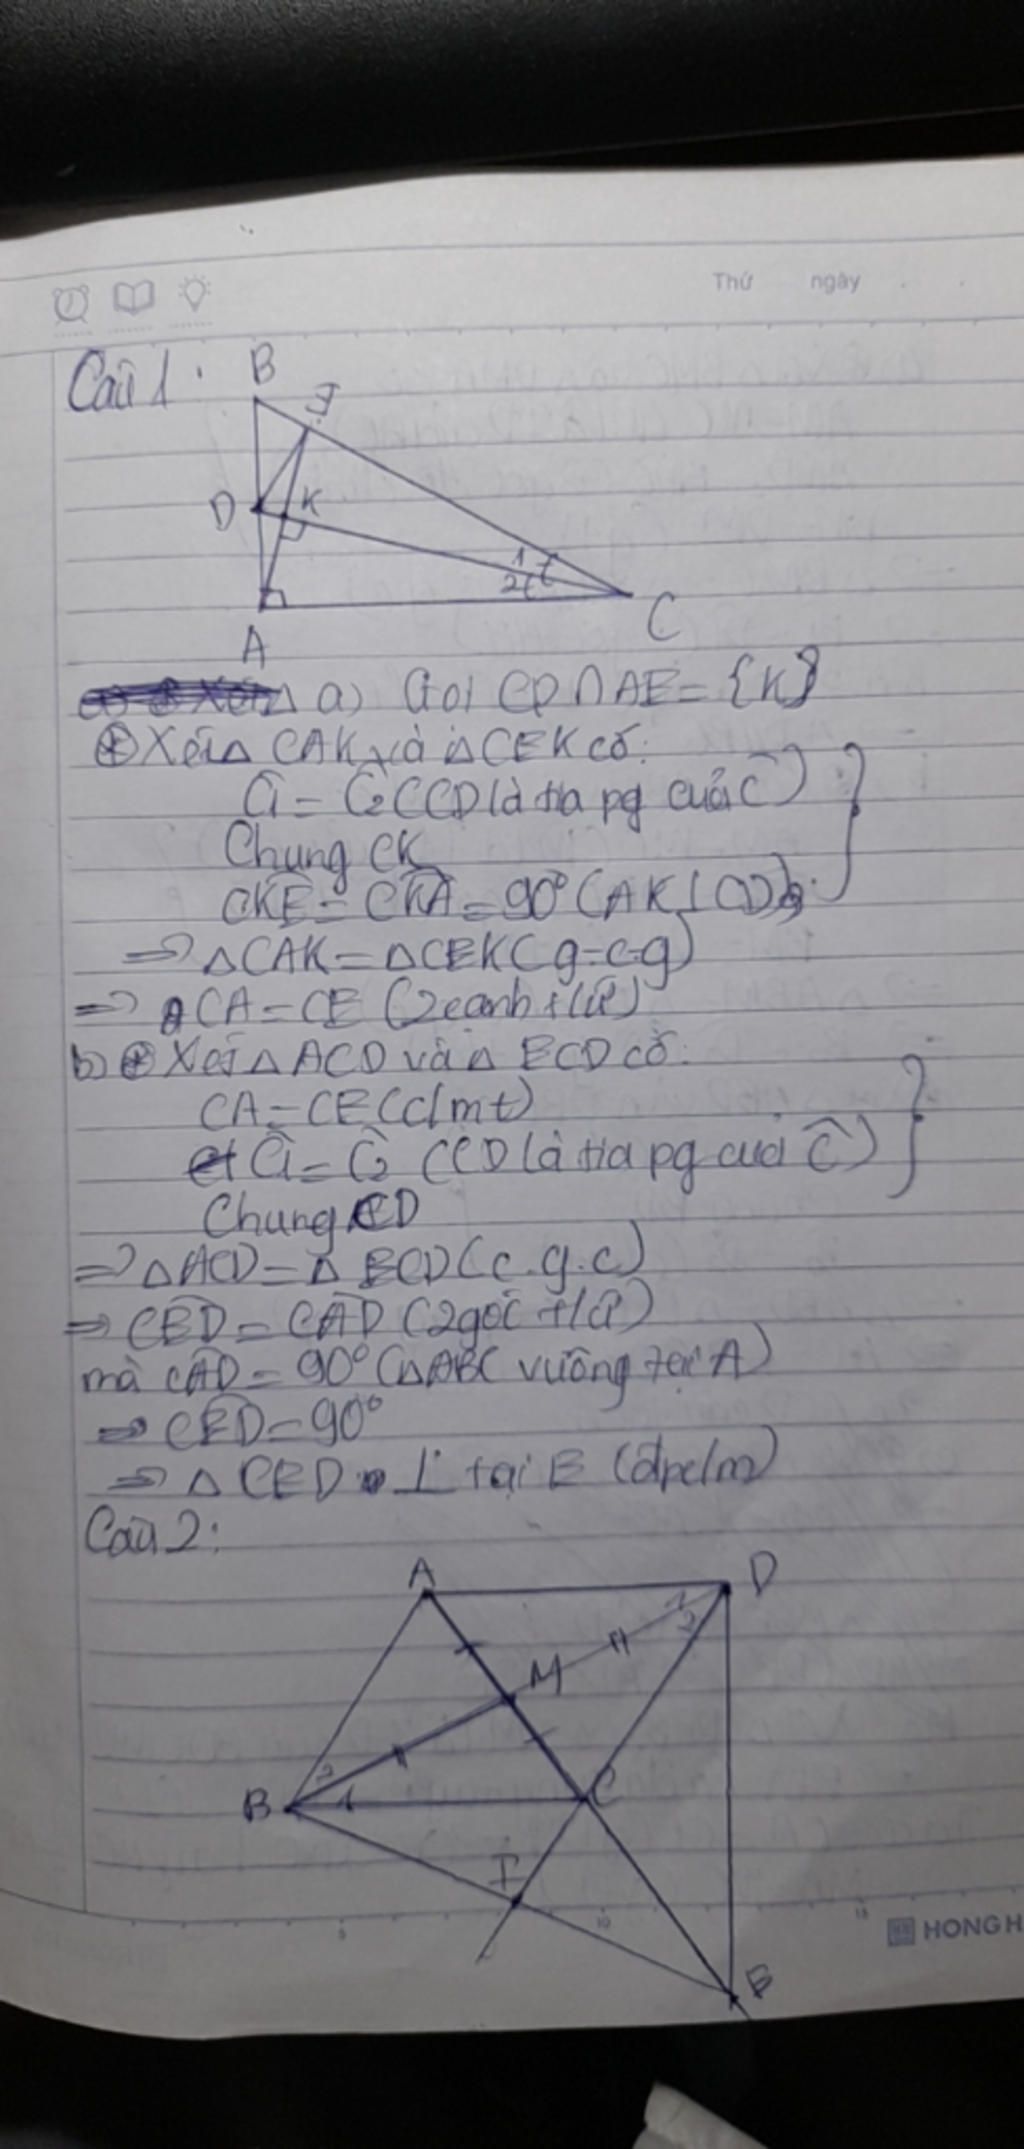 Thứ ngày
Câu 1:
B
E
D K
1
2
A C
a) Gọi CD ∩ AE = {K}
Xét △ CAK và △ CEK có:
C1 = C2 (CD là tia pg của C)
Chung CK
CKE = CKA = 90° (AK ⊥ CD)
=> △CAK = △CEK (g-c-g)
=> CA = CE (2 cạnh t/ứ)
b) Xét △ ACD và △ ECD có:
CA = CE (c/mt)
C1 = C2 (CD là tia pg của C)
Chung CD
=> △ACD = △ ECD (c.g.c)
=> CED = CAD (2 góc t/ứ)
mà CAD = 90° (△ABC vuông tại A)
=> CED = 90°
=> △ CED ⊥ tại E (đpc/m)
Câu 2:
A D
1
2
M
2
B 1 C
I
5 10 15
HONG H
E